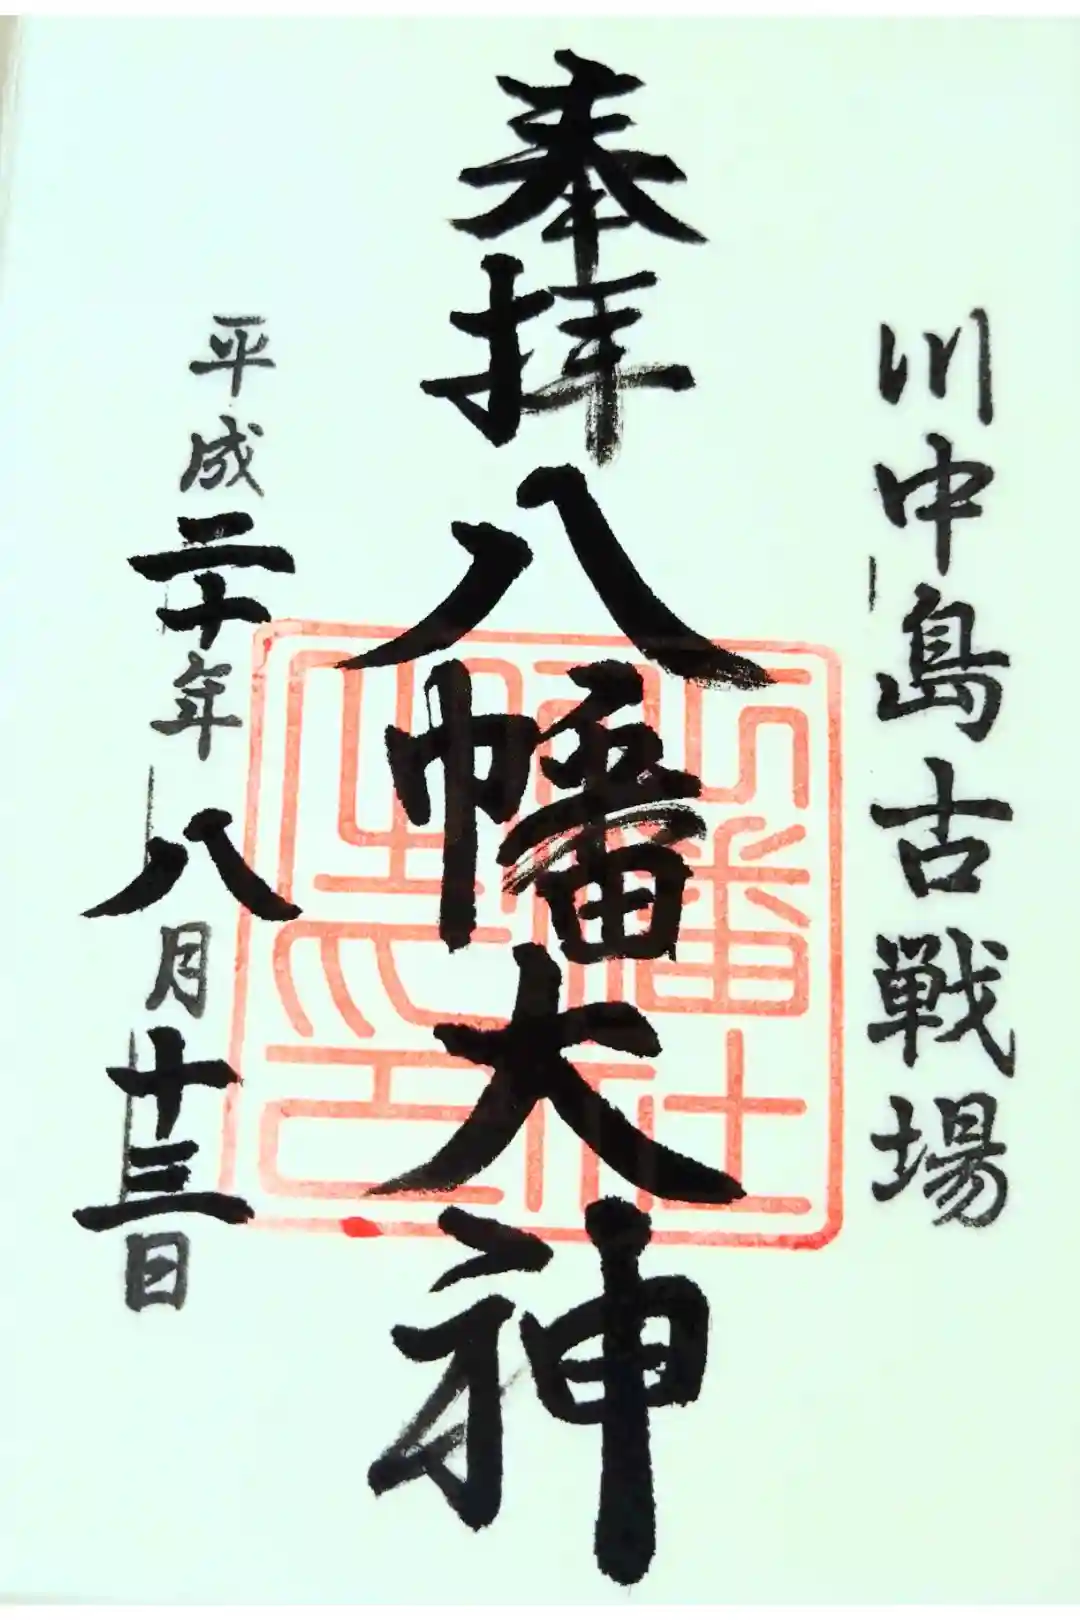 川中島古戦場
奉拝
八幡大神
平成二十年八月十三日
八幡社